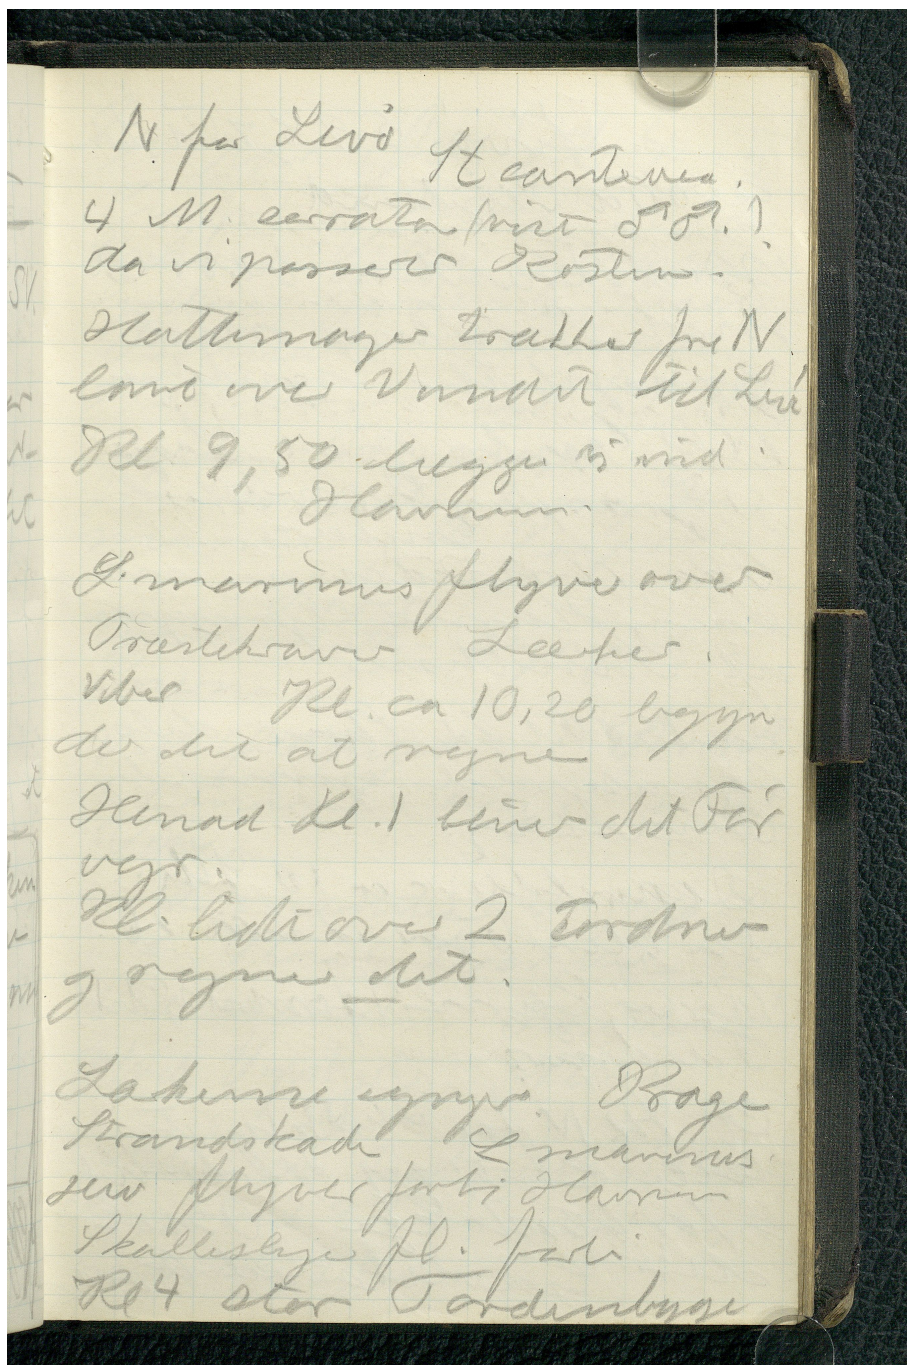 N for Livö
St cantiaca.
4 M. serrator (vist ♂♂.)
da vi passerer Kosten.
Hættemager trækker fra N
lavt over Vandet til Livö
Kl. 9,50 lægger vi ind
Havnen.
L. marinus flyver over
Præstekraver Lærker.
Viber Kl. ca 10,20 begyn
der det at regne
Henad Kl. 1 bliver det Tör
vejr.
Kl. lidt over 2 tordner
g regner det.
Lærkerne synger. Krage
Strandskade L marinus
ses flyver forbi Havnen
Skallesluger fl. forbi
Kl 4 stor Tordenbyge